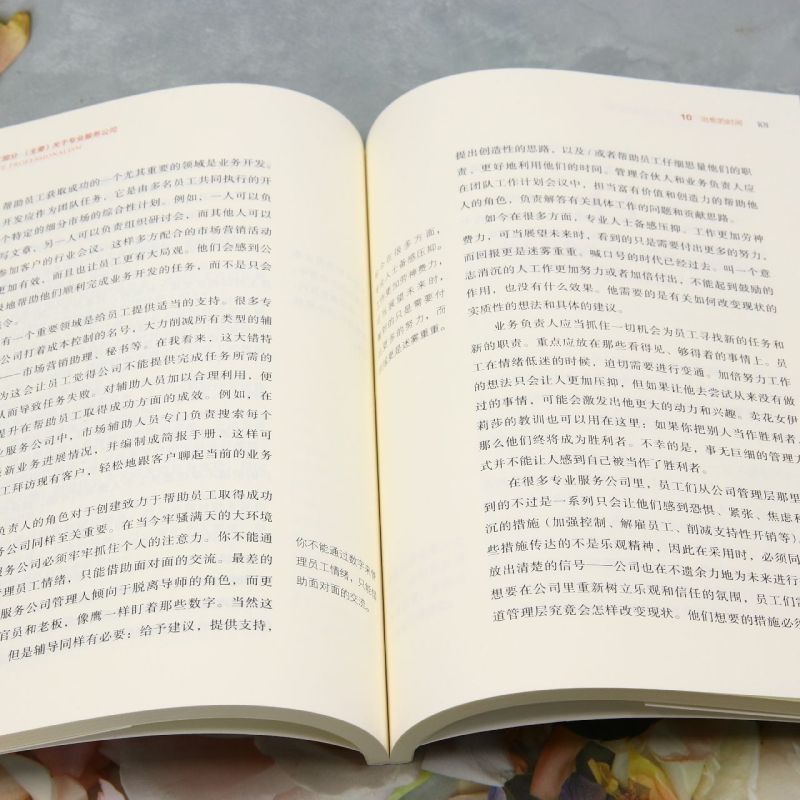 部分 （主要）关于专业服务公司
E PROFESSIONALISM
帮助员工获取成功的一个尤其重要的领域是业务开发。
开发应作为团队任务，它是由多名员工共同执行的开
个特定的细分市场的综合性计划。例如，一人可以负
写文章、另一人可以负责组织研讨会，而其他人可以
参加客户的行业会议。这样多方配合的市场营销活动
更加有效，而且也让员工更有大局观。他们会感到公
极地帮助他们顺利完成业务开发的任务，而不是只会
令。
有一个重要领域是给员工提供适当的支持。很多专
公司打着成本控制的名号，大力削减所有类型的辅
——市场营销助理、秘书等。在我看来，这大错特
为这会让员工觉得公司不能提供完成任务所需的
从而导致任务失败。对辅助人员加以合理利用，便
提升在帮助员工取得成功方面的成效。例如，在
业服务公司中，市场辅助人员专门负责搜索每个
最新业务进展情况，并编制成简报手册，这样可
工拜访现有客户，轻松地跟客户聊起当前的业务
负责人的角色对于创建致力于帮助员工取得成功
务公司同样至关重要。在当今牢骚满天的大环境
务公司必须牢牢抓住个人的注意力。你不能通
管理员工情绪，只能借助面对面的交流。最差的
服务公司管理人倾向于脱离导师的角色，而更
官员和老板，像鹰一样盯着那些数字。当然这
但是辅导同样有必要：给予建议，提供支持，
你不能通过数字来管
理员工情绪，只能借
助面对面的交流。
10
在很多方面，
人士备感压抑。
更加劳神费力，
展望未来时，
的只是需要付
的努力，而
是迷雾重重。
提出创造性的思路，以及/或者帮助员工仔细思量他们的职
责、更好地利用他们的时间。管理合伙人和业务负责人应
在团队工作计划会议中，担当富有价值和创造力的帮助他
人的角色，负责解答有关具体工作的问题和贡献思路。
如今在很多方面，专业人士备感压抑。工作更加劳神
费力，可当展望未来时，看到的只是需要付出更多的努力，
而回报更是迷雾重重。喊口号的时代已经过去。叫一个意
志消沉的人工作更加努力或者加倍付出，不能起到鼓励的
作用，也没有什么效果。他需要的是有关如何改变现状的
实质性的想法和具体的建议。
业务负责人应当抓住一切机会为员工寻找新的任务和
新的职责。重点应放在那些看得见、够得着的事情上。员
工在情绪低迷的时候，迫切需要进行变通。加倍努力工作
的想法只会让人更加压抑，但如果让他去尝试从来没有做
过的事情，可能会激发出他更大的动力和兴趣。卖花女伊
莉莎的教训也可以用在这里：如果你把别人当作胜利者，
那么他们终将成为胜利者。不幸的是，事无巨细的管理方
式并不能让人感到自己被当作了胜利者。
在很多专业服务公司里，员工们从公司管理层那里
到的不过是一系列只会让他们感到恐惧、紧张、焦虑和
沉的措施（加强控制、解雇员工、削减支持性开销等）
些措施传达的不是乐观精神，因此在采用时，必须同
放出清楚的信号——公司也在不遗余力地为未来进行
想要在公司里重新树立乐观和信任的氛围，员工们需
道管理层究竟会怎样改变现状。他们想要的措施必须